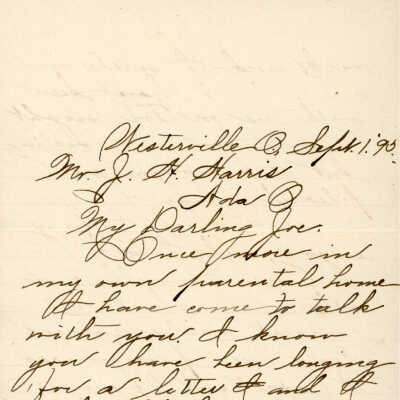 Westerville O. Sept. 1. '90.
Mr. J. H. Harris
Ada O
My Darling Joe.
Once more in
my own parental home
I have come to talk
with you. I know
you have been longing
for a letter & and I